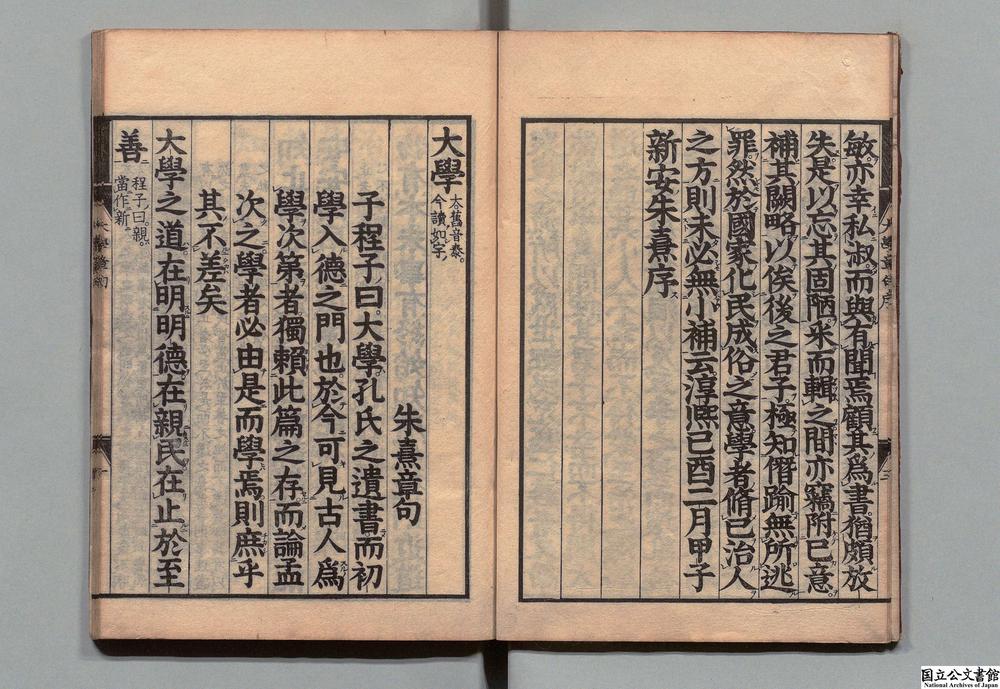 敏亦幸私淑而與有聞焉顧其爲書猶頗放
失是以忘其固陋采而輯之間亦竊附已意
補其闕略以俟後之君子極知僭踰無所逃
罪然於國家化民成俗之意學者脩已治人
之方則未必無小補云淳熈已酉二月甲子
新安朱熹序
大學
大舊音泰
今讀如字
朱熹章句
子程子曰大學孔氏之遺書而初
學入德之門也於今可見古人爲
學次第者獨賴此篇之存而論孟
次之學者必由是而學焉則庶乎
其不差矣
大學之道在明明德在親民在止於至
善
程子曰親
當作新
国立公文書館
National Archives of Japan